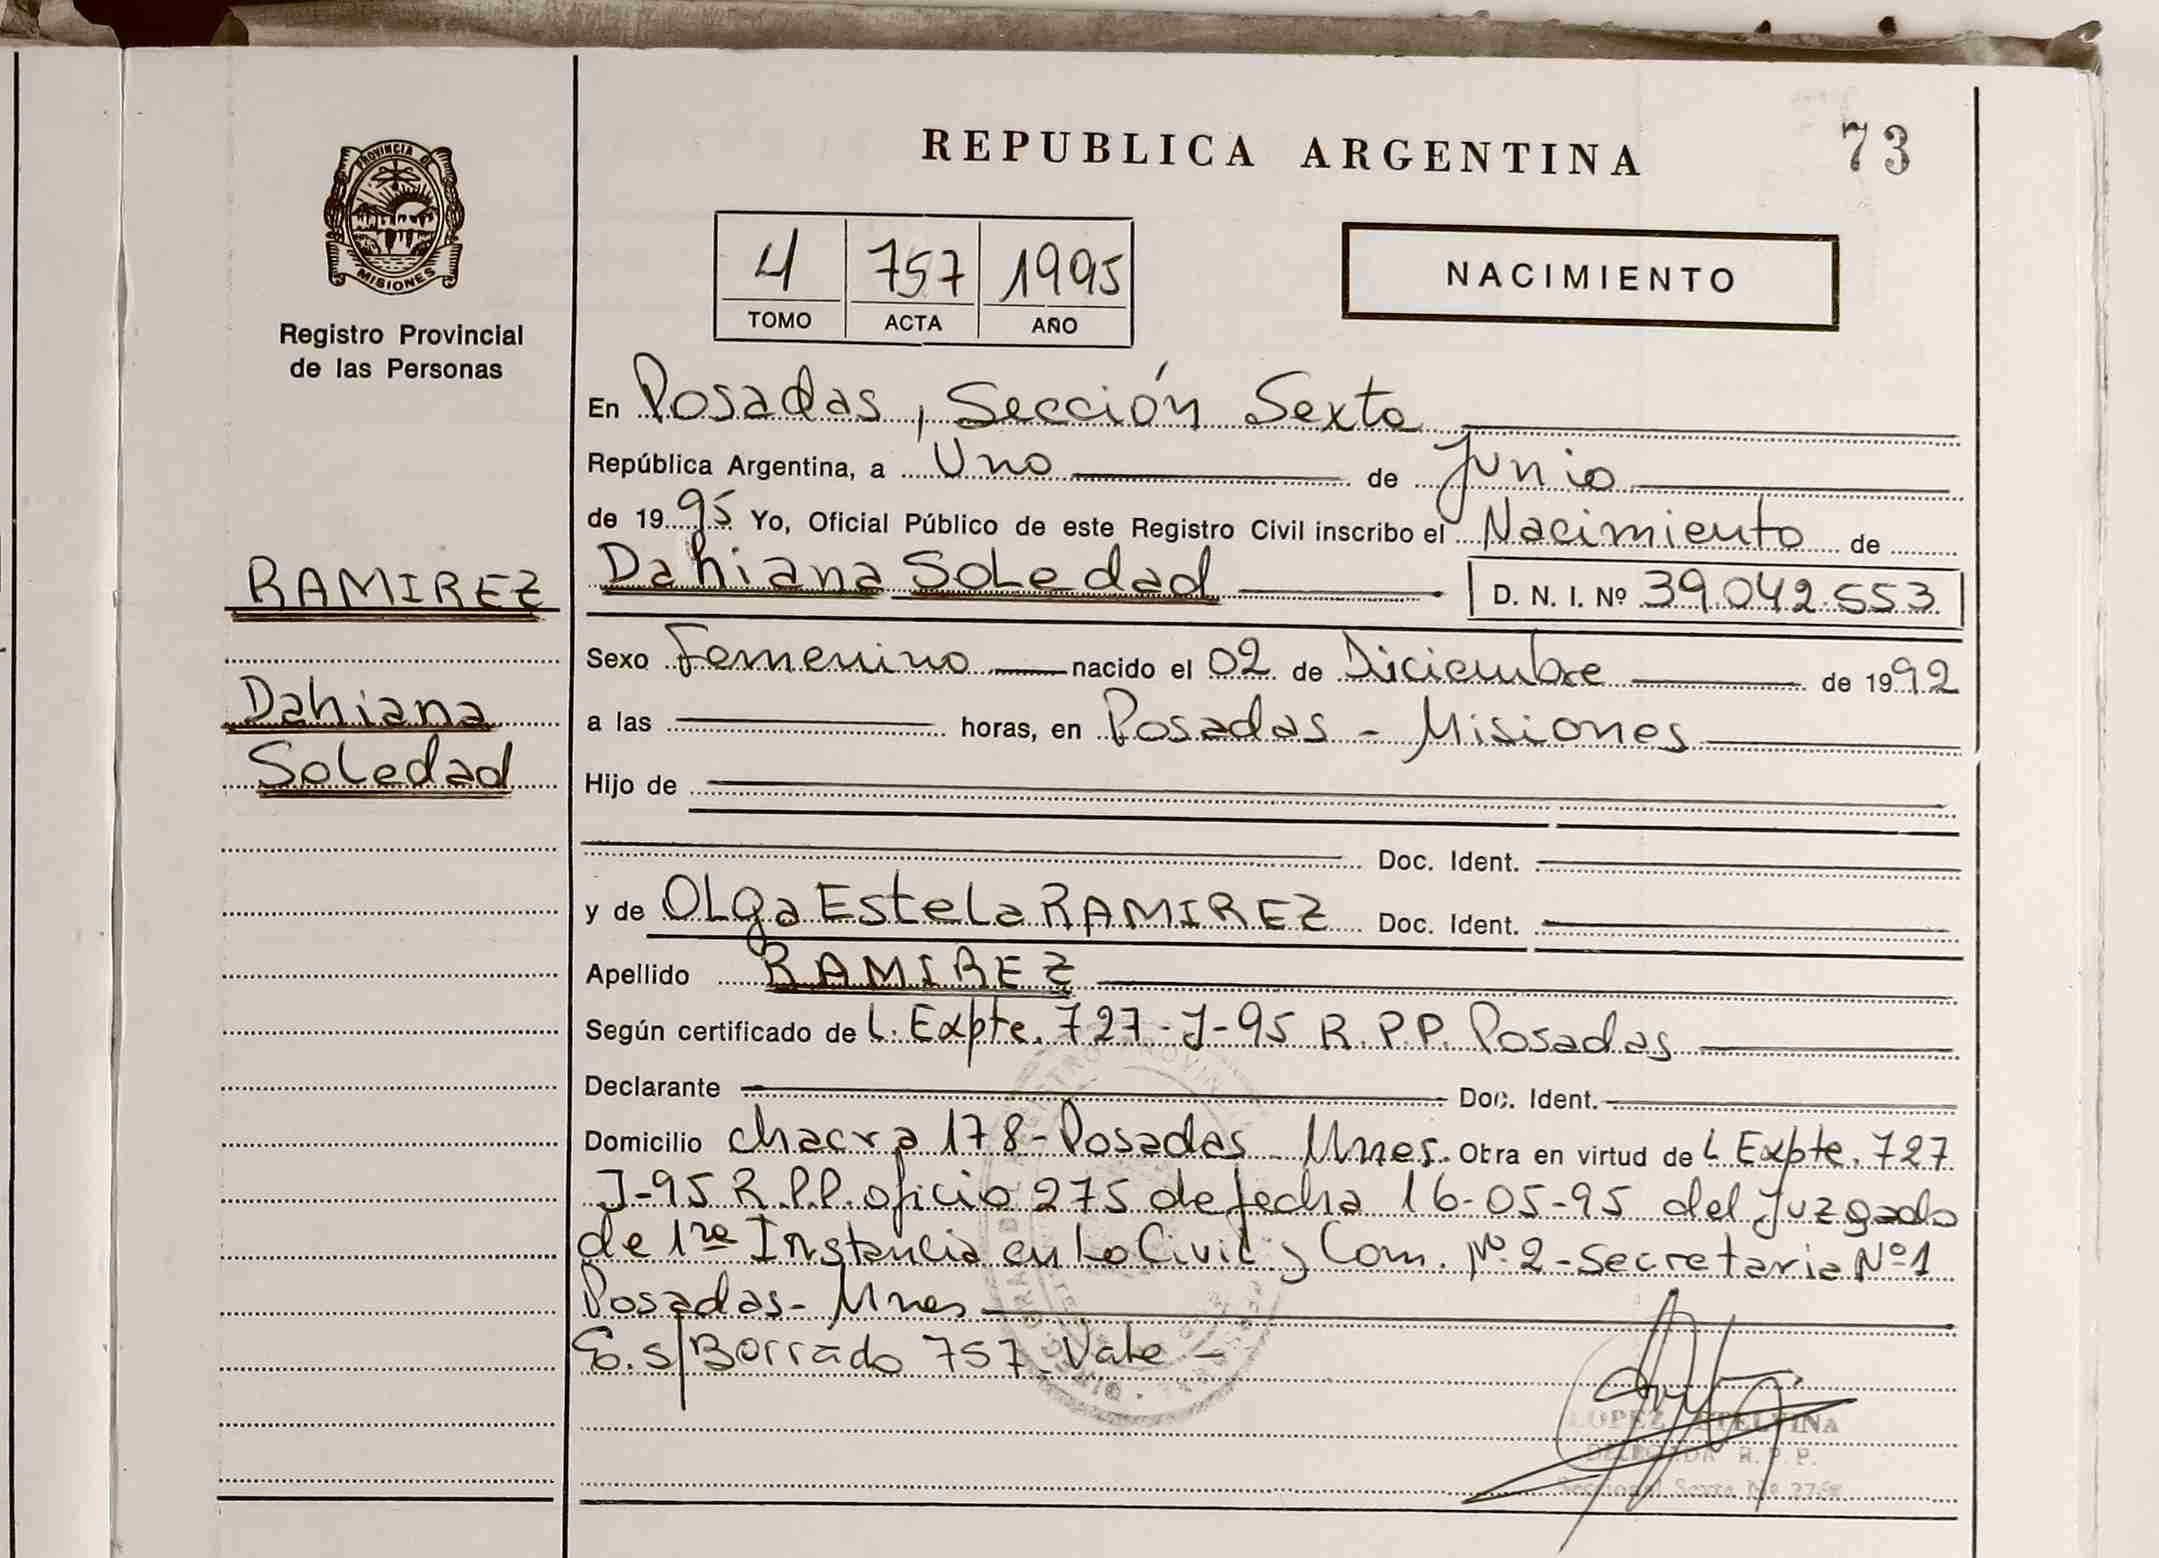 REPUBLICA ARGENTINA
73
PROVINCIA DE
MISIONES
Registro Provincial
de las Personas
4 757 1995
TOMO ACTA AÑO
NACIMIENTO
En Posadas, Sección Sexta
República Argentina, a Uno de Junio
de 1995 Yo, Oficial Público de este Registro Civil inscribo el Nacimiento de
RAMIREZ
Dahiana Soledad
Dahiana Soledad D. N. I. Nº 39.042.553
Sexo Femenino nacido el 02 de Diciembre de 1992
a las horas, en Posadas - Misiones
Hijo de
Doc. Ident.
y de OLga EsteLa RAMIREZ Doc. Ident.
Apellido RAMIREZ
Según certificado de L. Expte. 727-J-95 R.P.P. Posadas
Declarante Doc. Ident.
Domicilio chacra 178-Posadas - Mnes. Obra en virtud de L Expte. 727
J-95 R.P.P. oficio 275 de fecha 16-05-95 del Juzgado
de 1ra Instancia en Lo Civil y Com. Nº 2-Secretaria Nº1
Posadas- Mnes
E. s/Borrado 757 Vale -
LOPEZ ETELVINA
R. P. P.
Seccional Sexta Nº